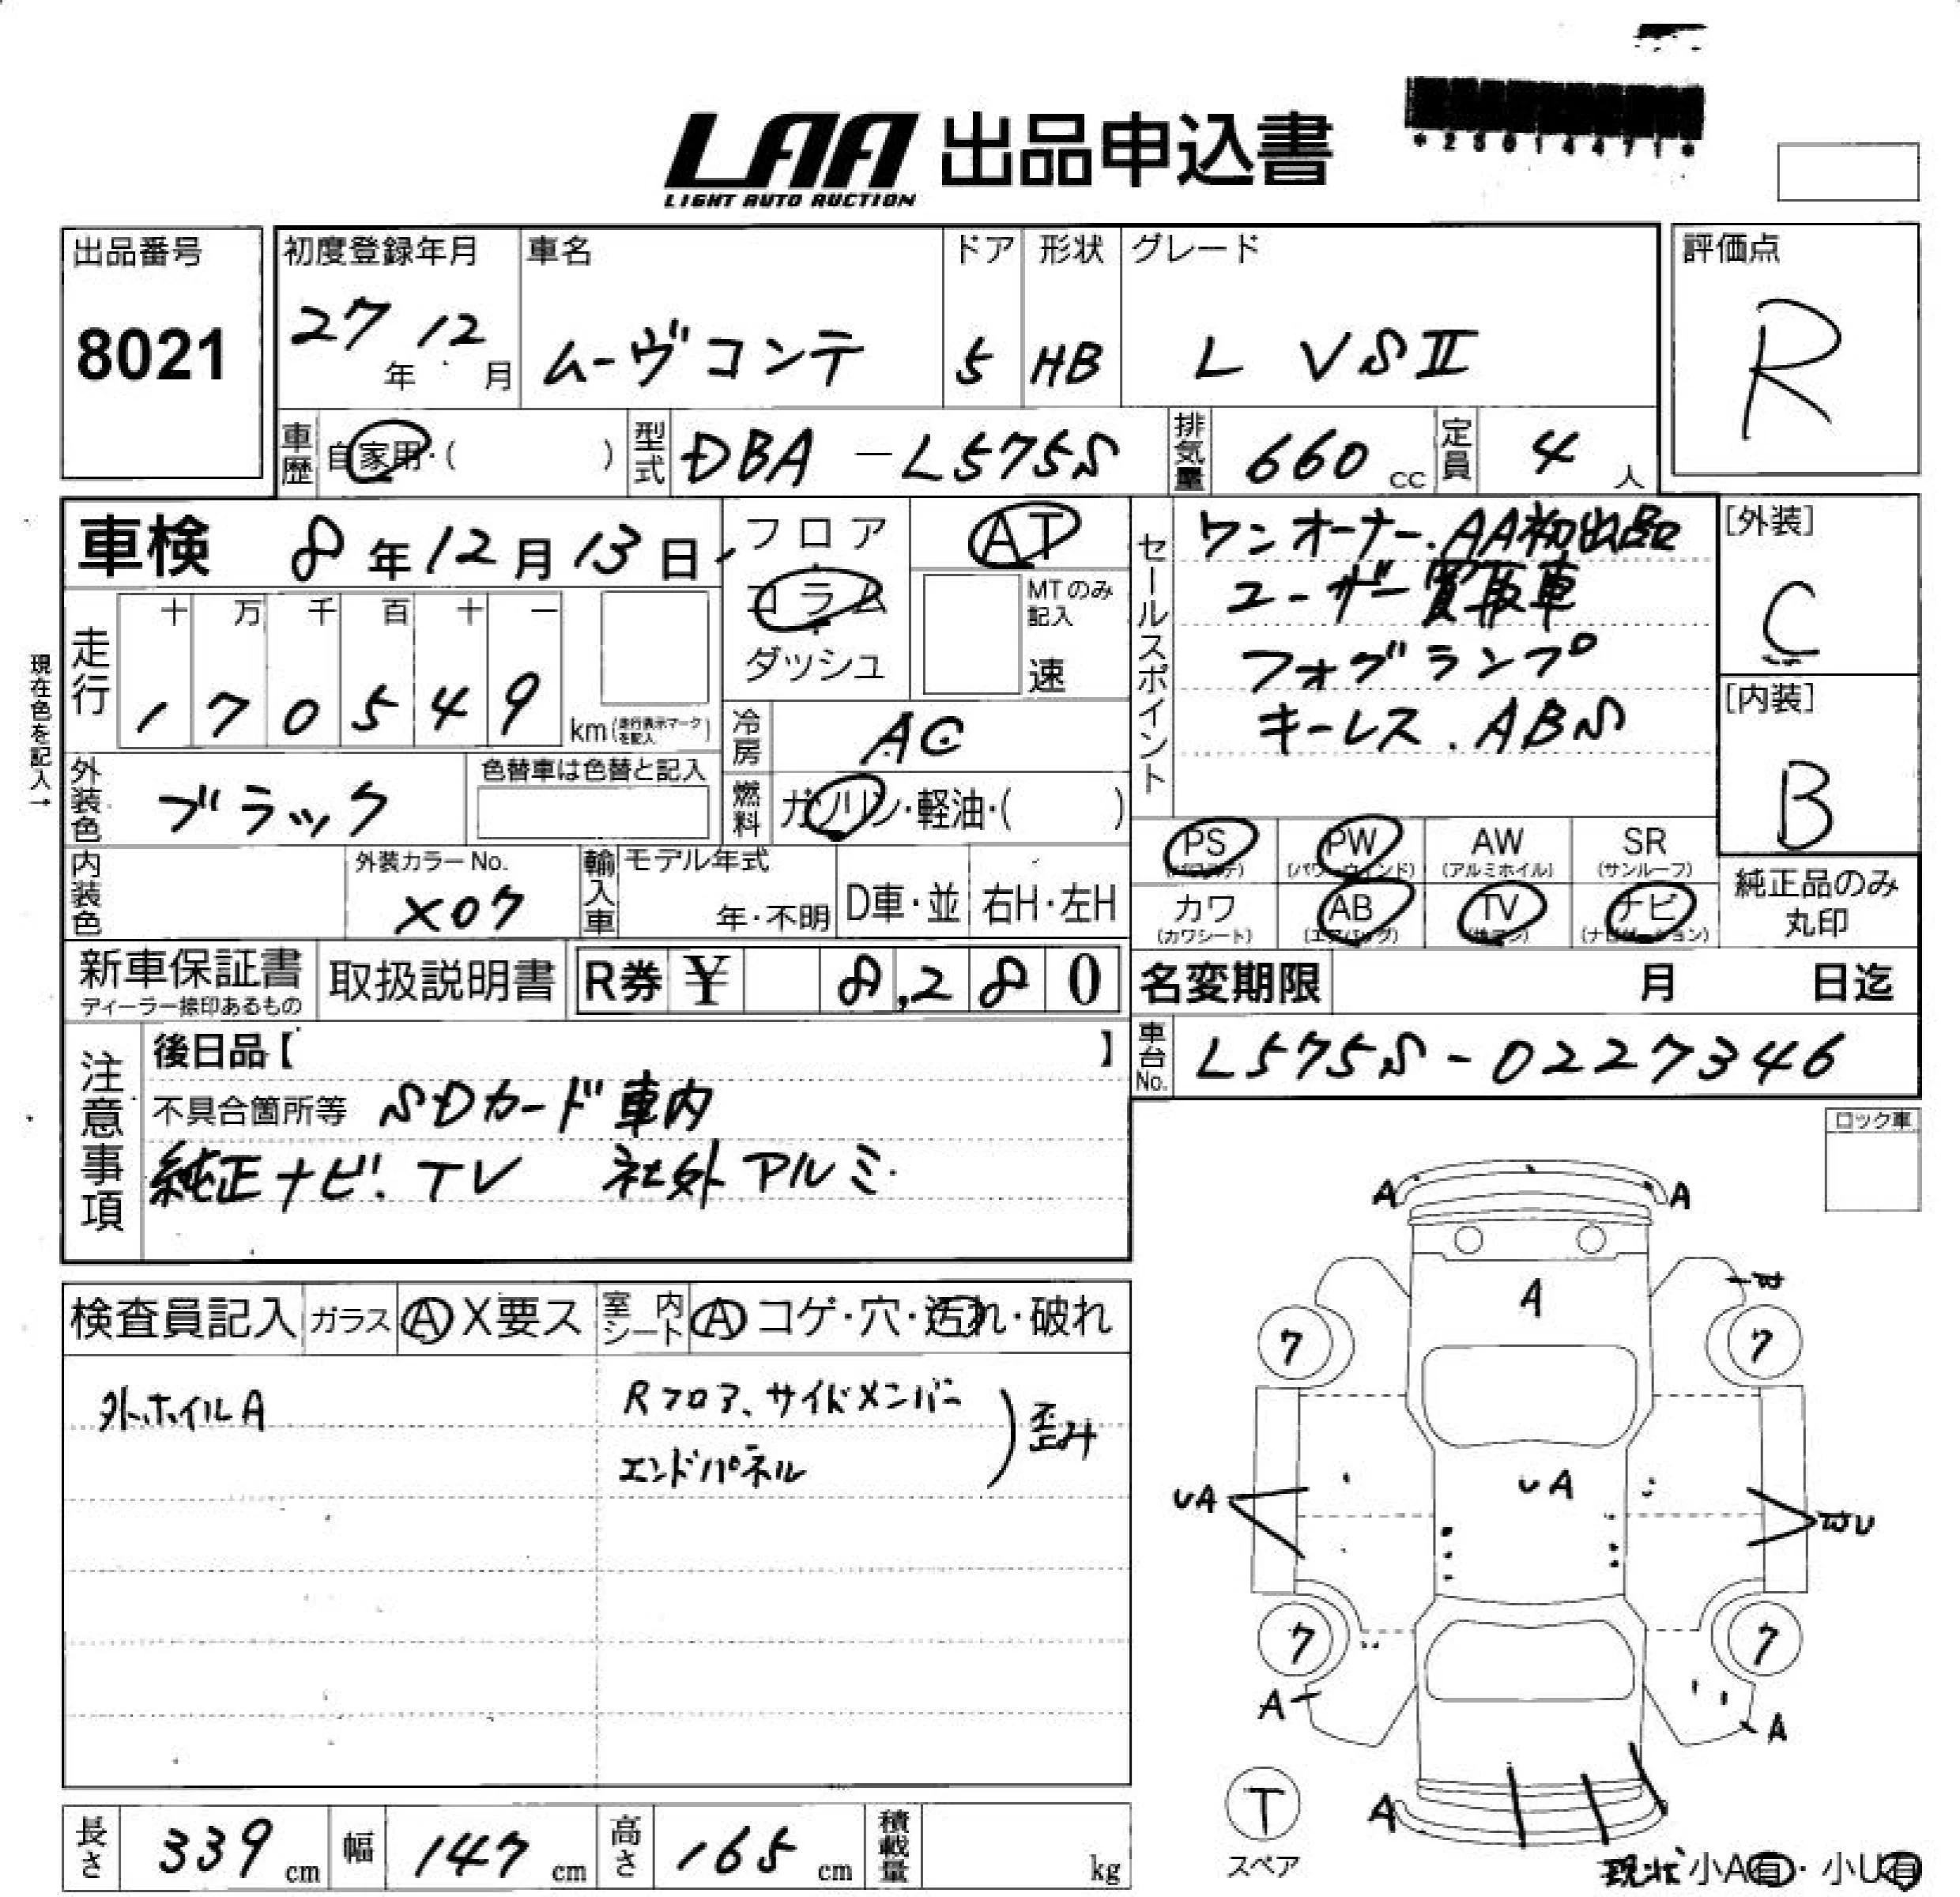 LAA 出品申込書
LIGHT AUTO AUCTION
*25014471*
出品番号
8021
初度登録年月
27年12月
車名
ムーヴコンテ
ドア
5
形状
HB
グレード
L VSⅡ
評価点
R
車歴 自家用・( )
型式 DBA-L575S
排気量 660 cc
定員 4 人
車検 8年12月13日
フロア
コラム
ダッシュ
AT
MTのみ
記入
速
セールスポイント
ワンオーナー.AA初出品
ユーザー買取車
フォグランプ
キーレス.ABS
[外装]
C
[内装]
B
現在色を記入→
走行
十 万 千 百 十 一
1 7 0 5 4 9
km(走行表示マークを記入)
冷房 AC
燃料 ガソリン・軽油・( )
外装色 ブラック
色替車は色替と記入
内装色
外装カラーNo.
X07
輸入車
モデル年式
年・不明
D車・並
右H・左H
PS (パワステ)
PW (パワーウインド)
AW (アルミホイル)
SR (サンルーフ)
カワ (カワシート)
AB (エアバッグ)
TV (地デジ)
ナビ (ナビゲーション)
純正品のみ
丸印
新車保証書
ディーラー捺印あるもの
取扱説明書
R券 ¥ 8,280
名変期限 月 日迄
車台No. L575S-0227346
注意事項
後日品【 】
不具合箇所等 SDカード車内
純正ナビ.TV 社外アルミ
ロック車
検査員記入 ガラス A X要ス
室内シート A コゲ・穴・汚れ・破れ
外ホイルA
Rフロア、サイドメンバー
エンドパネル
歪み
A A
A
7 7
UA
UA
U
7 7
A A
T
スペア
A
現状 小A有・小U有
長さ 339 cm
幅 147 cm
高さ 165 cm
積載量 kg